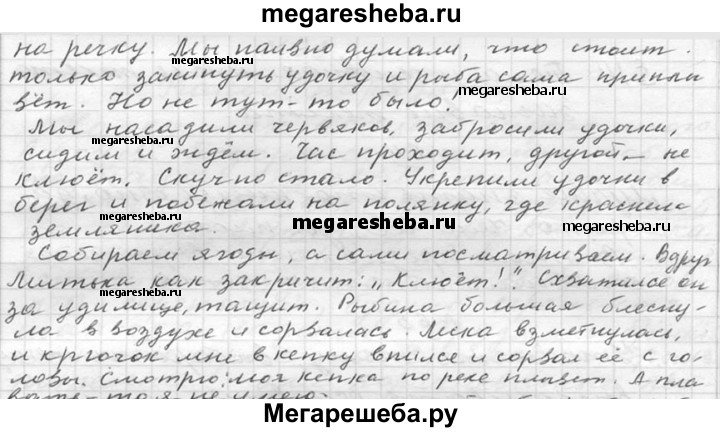 megaresheba.ru
на речку. Мы наивно думали, что стоит
только закинуть удочку и рыба сама приплы
вёт. Но не тут-то было!
megaresheba.ru
megaresheba.ru
Мы насадили червяков, забросили удочки,
сидим и ждём. Час проходит, другой – не
клюёт. Скучно стало. Укрепили удочки в
берег и побежали на полянку, где краснела
земляника.
megaresheba.ru
megaresheba.ru
megaresheba.ru
Собираем ягоды, а сами посматриваем. Вдруг
Митька как закричит: „Клюёт!". Схватился он
за удилище, тащит. Рыбина большая блесну-
megaresheba.ru
megaresheba.ru
ла в воздухе и сорвалась. Леска взметнулась,
и крючок мне в кепку впился и сорвал её с го-
ловы. Смотрю: моя кепка по реке плывёт. А пла
megaresheba.ru
megaresheba.ru
вать-то я не умею.
Мегарешеба.ру